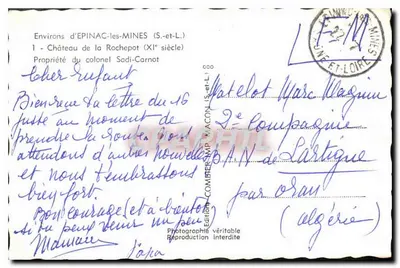 Environs d'EPINAC-les-MINES (S.-et-L.)
1 - Château de la Rochepot (XIe siècle)
Propriété du colonel Sadi-Carnot
Cher Enfant
Bien reçu ta lettre du 16
juste au moment de
prendre la route
attendons d'autres nouvelles
et nous t'embrassons
bien fort.
Bon courage (et à bientôt
si tu peux venir un peu)
Maman
Papa
F M
MINES
27
SAÔNE-ET-LOIRE
Matelot Marc Magnin
2e Compagnie
B.A.N de Lartigue
par Oran
(Algérie)
COMBIER IMP. MACON (S.-et-L.)
Photographie véritable
Reproduction interdite